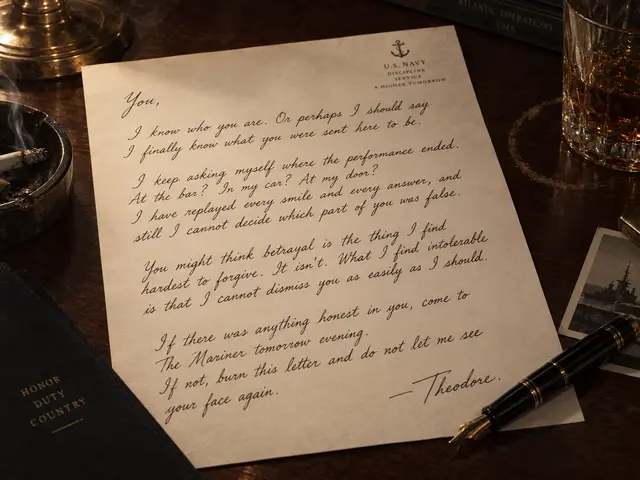 ATLANTIC OPERATIONS
1945
U.S. NAVY
DISCIPLINE
SERVICE
A HIGHER TOMORROW
You,
I know who you are. Or perhaps I should say
I finally know what you were sent here to be.
I keep asking myself where the performance ended.
At the bar? In my car? At my door?
I have replayed every smile and every answer, and
still I cannot decide which part of you was false.
You might think betrayal is the thing I find
hardest to forgive. It isn't. What I find intolerable
is that I cannot dismiss you as easily as I should.
If there was anything honest in you, come to
The Mariner tomorrow evening.
If not, burn this letter and do not let me see
your face again.
— Theodore.
HONOR
DUTY
COUNTRY